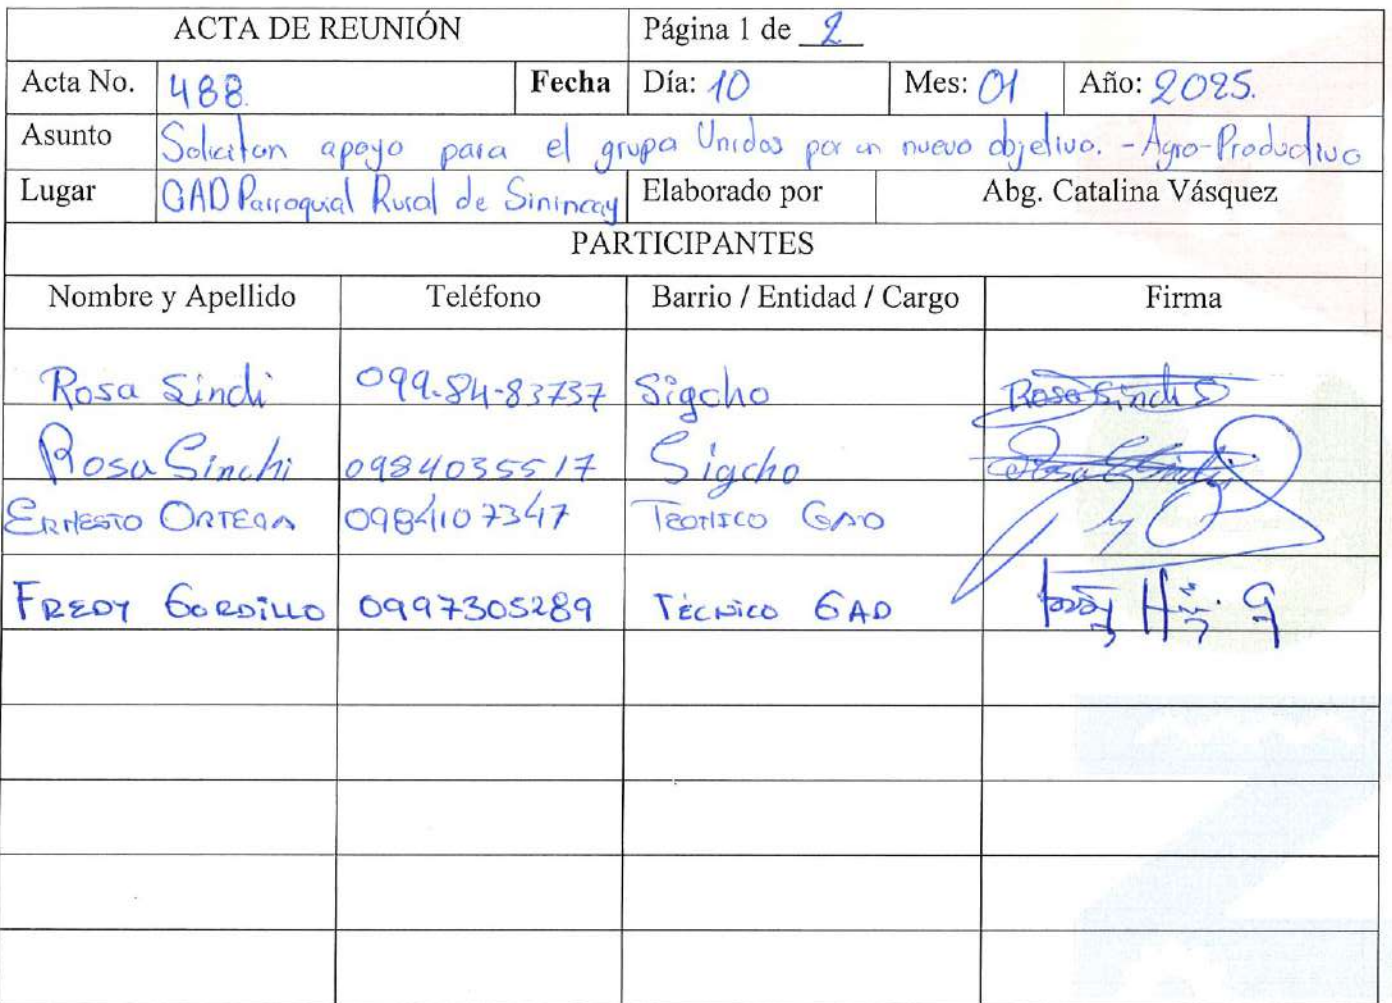 ACTA DE REUNIÓN Página 1 de 2
Acta No. 488. Fecha Día: 10 Mes: 01 Año: 2025.
Asunto Solicitan apoyo para el grupo Unidos por un nuevo objetivo. - Agro-Productivo
Lugar GAD Parroquial Rural de Sinincay Elaborado por Abg. Catalina Vásquez
PARTICIPANTES
Nombre y Apellido Teléfono Barrio / Entidad / Cargo Firma
Rosa Sinchi 099-84-83737 Sigcho Rosa Sinchi S
Rosa Sinchi 0984035517 Sigcho Rosa Sinchi
ERNESTO ORTEGA 0984107347 TECNICO GAD
FREDY GORDILLO 0997305289 TÉCNICO GAD